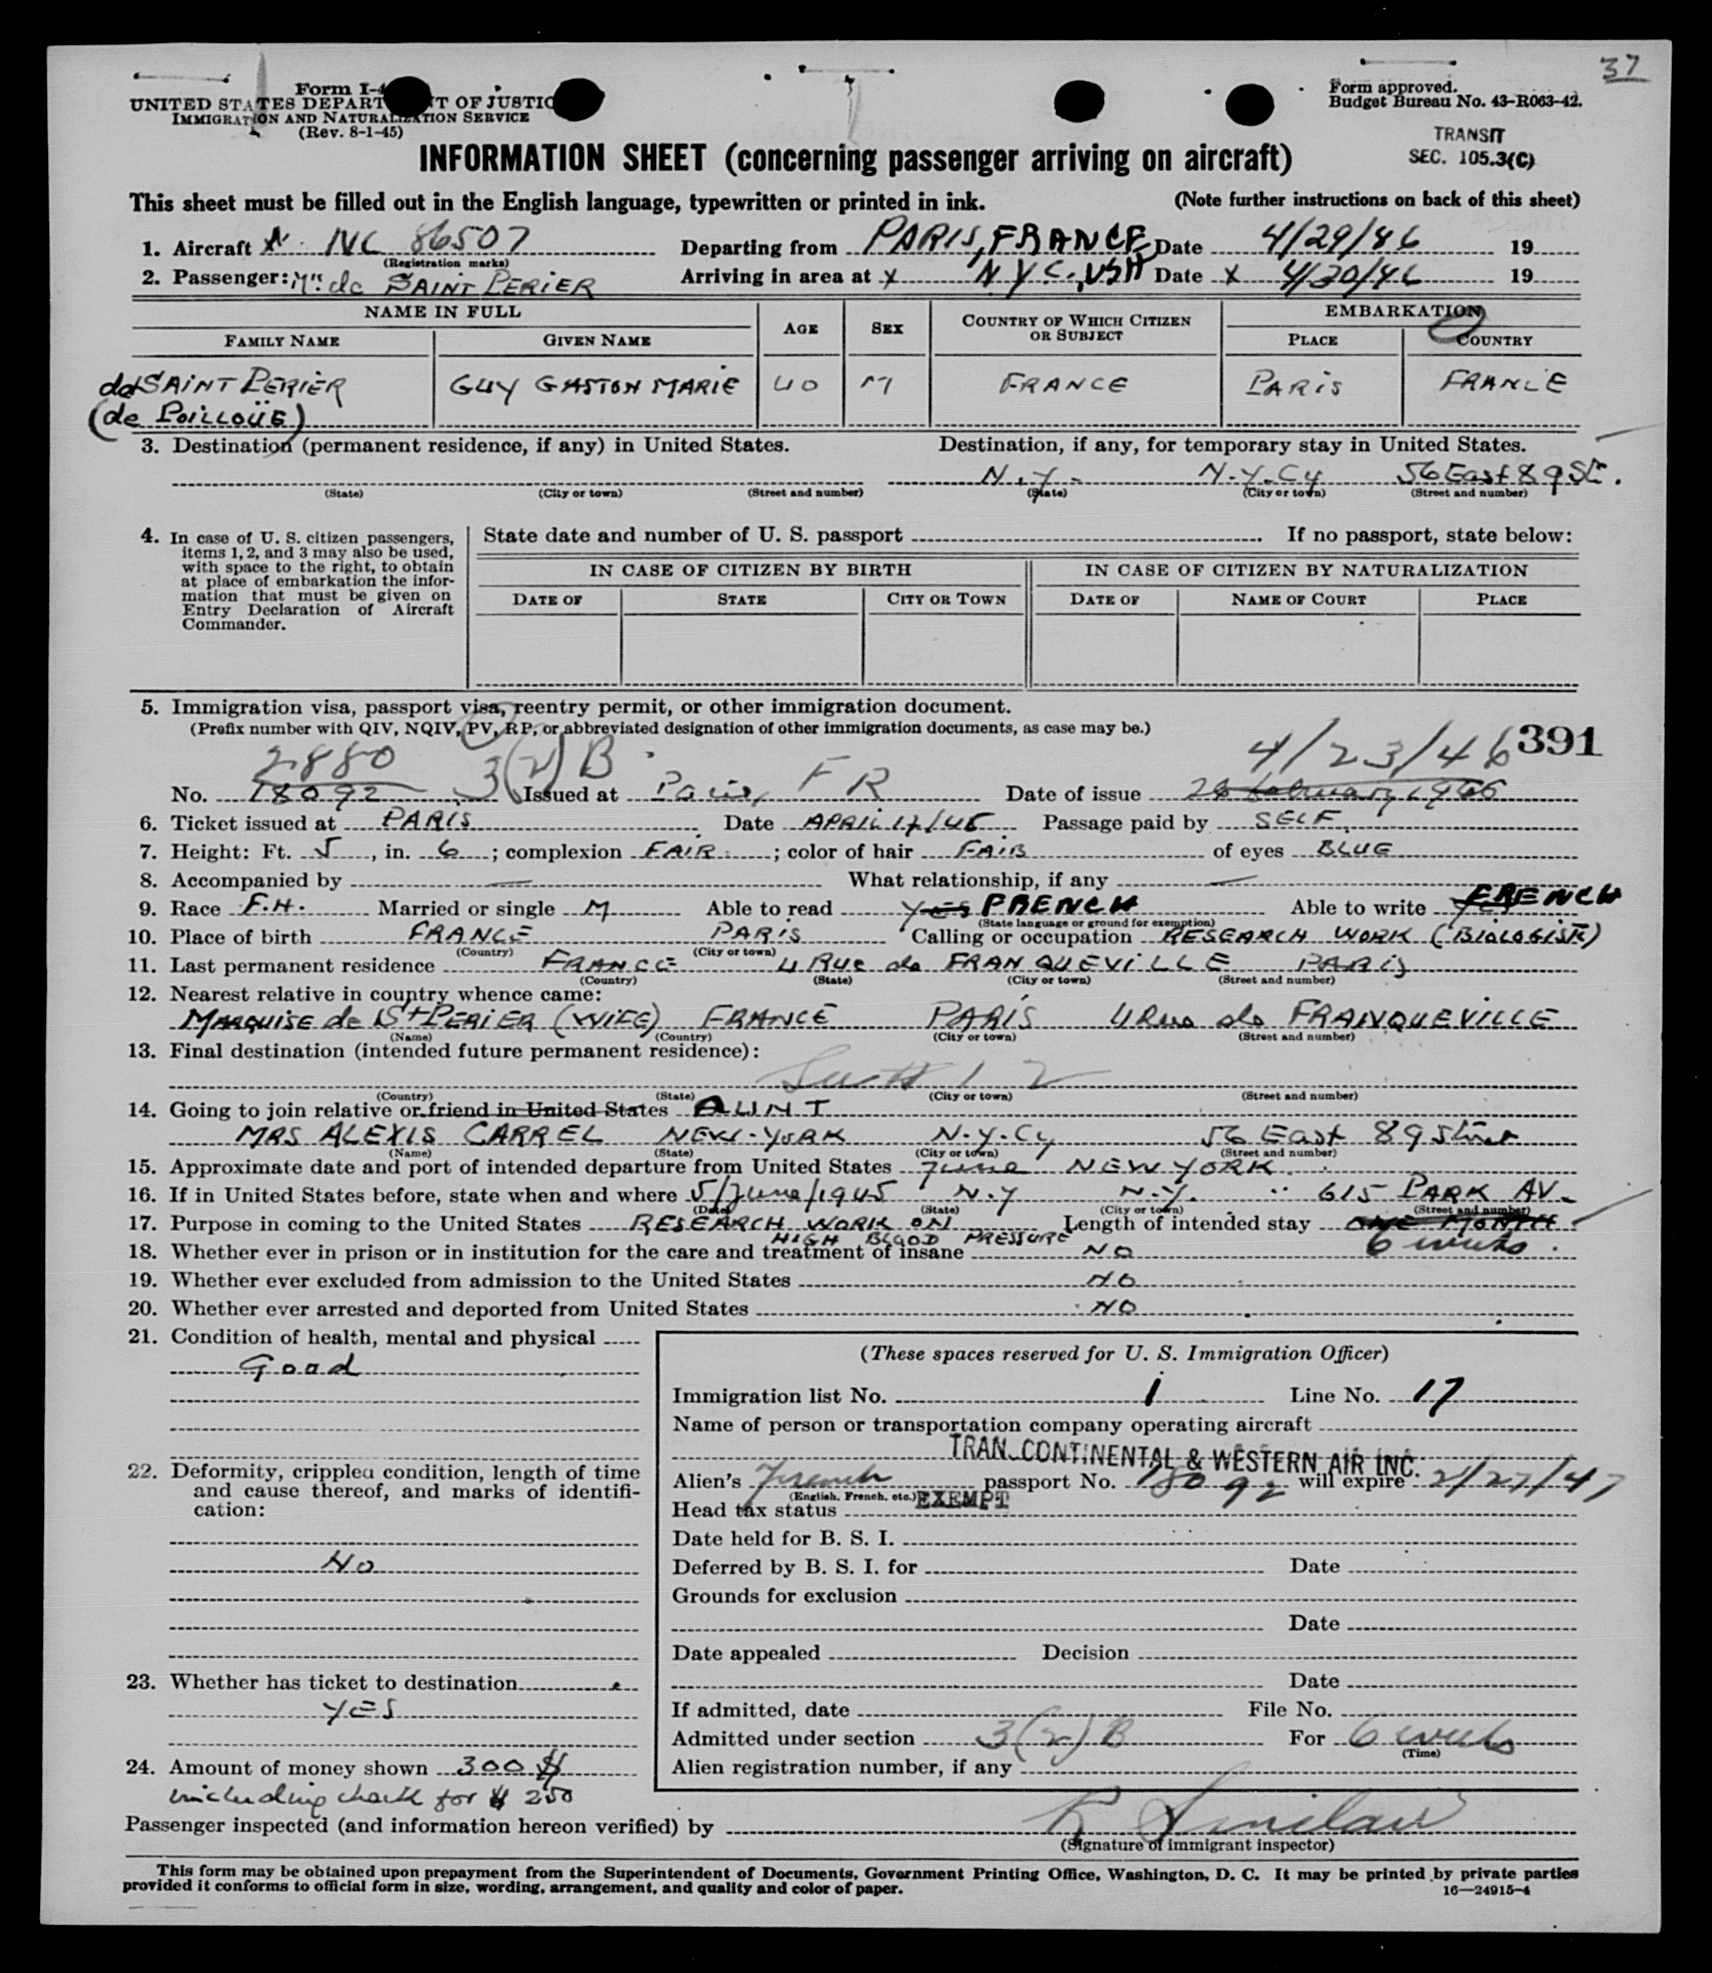 37
Form I-4
UNITED STATES DEPART T OF JUSTIC
IMMIGRATION AND NATURALIZATION SERVICE
(Rev. 8-1-45)
Form approved.
Budget Bureau No. 43-R063-42.
TRANSIT
SEC. 105.3(C)
INFORMATION SHEET (concerning passenger arriving on aircraft)
This sheet must be filled out in the English language, typewritten or printed in ink. (Note further instructions on back of this sheet)
1. Aircraft NC 86507 Departing from PARIS, FRANCE Date 4/29/46 19
(Registration marks)
2. Passenger: Mr. de SAINT PERIER Arriving in area at X N.Y.C., USA Date X 4/30/46 19
NAME IN FULL AGE SEX COUNTRY OF WHICH CITIZEN OR SUBJECT EMBARKATION
FAMILY NAME GIVEN NAME PLACE COUNTRY
de SAINT PERIER GUY GASTON MARIE 40 M FRANCE PARIS FRANCE
(de POILLOÜE)
3. Destination (permanent residence, if any) in United States. Destination, if any, for temporary stay in United States.
N.Y. N.Y.Cy 56 East 89 St.
(State) (City or town) (Street and number) (State) (City or town) (Street and number)
4. In case of U. S. citizen passengers, items 1, 2, and 3 may also be used, with space to the right, to obtain at place of embarkation the information that must be given on Entry Declaration of Aircraft Commander.
State date and number of U. S. passport If no passport, state below:
IN CASE OF CITIZEN BY BIRTH IN CASE OF CITIZEN BY NATURALIZATION
DATE OF STATE CITY OR TOWN DATE OF NAME OF COURT PLACE
5. Immigration visa, passport visa, reentry permit, or other immigration document.
(Prefix number with QIV, NQIV, PV, RP, or abbreviated designation of other immigration documents, as case may be.)
391
2880 3(2)B 4/23/46
No. 18092 Issued at Paris, FR Date of issue 26 february 1946
6. Ticket issued at PARIS Date APRIL 17/46 Passage paid by SELF
7. Height: Ft. 5, in. 6; complexion FAIR; color of hair FAIR of eyes BLUE
8. Accompanied by — What relationship, if any —
9. Race F.H. Married or single M Able to read YES FRENCH Able to write YES FRENCH
(State language or ground for exemption)
10. Place of birth FRANCE PARIS Calling or occupation RESEARCH WORK (BIOLOGIST)
(Country) (City or town)
11. Last permanent residence FRANCE 4 Rue de FRANQUEVILLE PARIS
(Country) (State) (City or town) (Street and number)
12. Nearest relative in country whence came:
MARQUISE de St PERIER (WIFE) FRANCE PARIS 4 Rue de FRANQUEVILLE
(Name) (Country) (City or town) (Street and number)
13. Final destination (intended future permanent residence):
(Country) (State) (City or town) (Street and number)
14. Going to join relative or friend in United States AUNT
MRS ALEXIS CARREL NEW-YORK N.Y.Cy 56 East 89 Street
(Name) (State) (City or town) (Street and number)
15. Approximate date and port of intended departure from United States June NEW YORK
16. If in United States before, state when and where 5/June/1945 N.Y N.Y. 615 PARK AV.
(Date) (State) (City or town) (Street and number)
17. Purpose in coming to the United States RESEARCH WORK ON HIGH BLOOD PRESSURE Length of intended stay ONE MONTH
6 weeks
18. Whether ever in prison or in institution for the care and treatment of insane NO
19. Whether ever excluded from admission to the United States NO
20. Whether ever arrested and deported from United States NO
21. Condition of health, mental and physical
Good
22. Deformity, crippled condition, length of time and cause thereof, and marks of identification:
No
23. Whether has ticket to destination
YES
24. Amount of money shown 300 $
including check for $ 250
(These spaces reserved for U. S. Immigration Officer)
Immigration list No. 1 Line No. 17
Name of person or transportation company operating aircraft
TRANSCONTINENTAL & WESTERN AIR INC.
Alien's French passport No. 18092 will expire 2/27/47
(English, French, etc.)
Head tax status EXEMPT
Date held for B. S. I.
Deferred by B. S. I. for Date
Grounds for exclusion
Date
Date appealed Decision
Date
If admitted, date File No.
Admitted under section 3(2)B For 6 weeks
(Time)
Alien registration number, if any
Passenger inspected (and information hereon verified) by
(Signature of immigrant inspector)
This form may be obtained upon prepayment from the Superintendent of Documents, Government Printing Office, Washington, D. C. It may be printed by private parties
provided it conforms to official form in size, wording, arrangement, and quality and color of paper. 16—24915-4